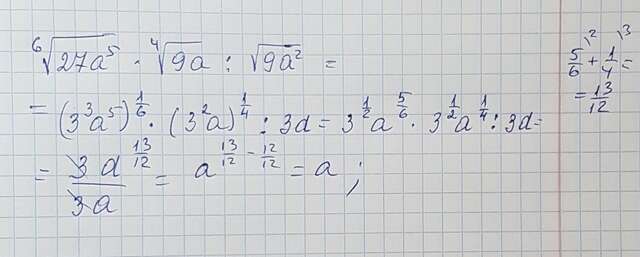 ⁶√27a⁵ · ⁴√9a : √9a² =
= (3³a⁵)^(1/6) · (3²a)^(1/4) : 3a = 3^(1/2) a^(5/6) · 3^(1/2) a^(1/4) : 3a =
= 3a^(13/12) / 3a = a^(13/12 - 12/12) = a ;
5/6 \2 + 1/4 \3 =
= 13/12